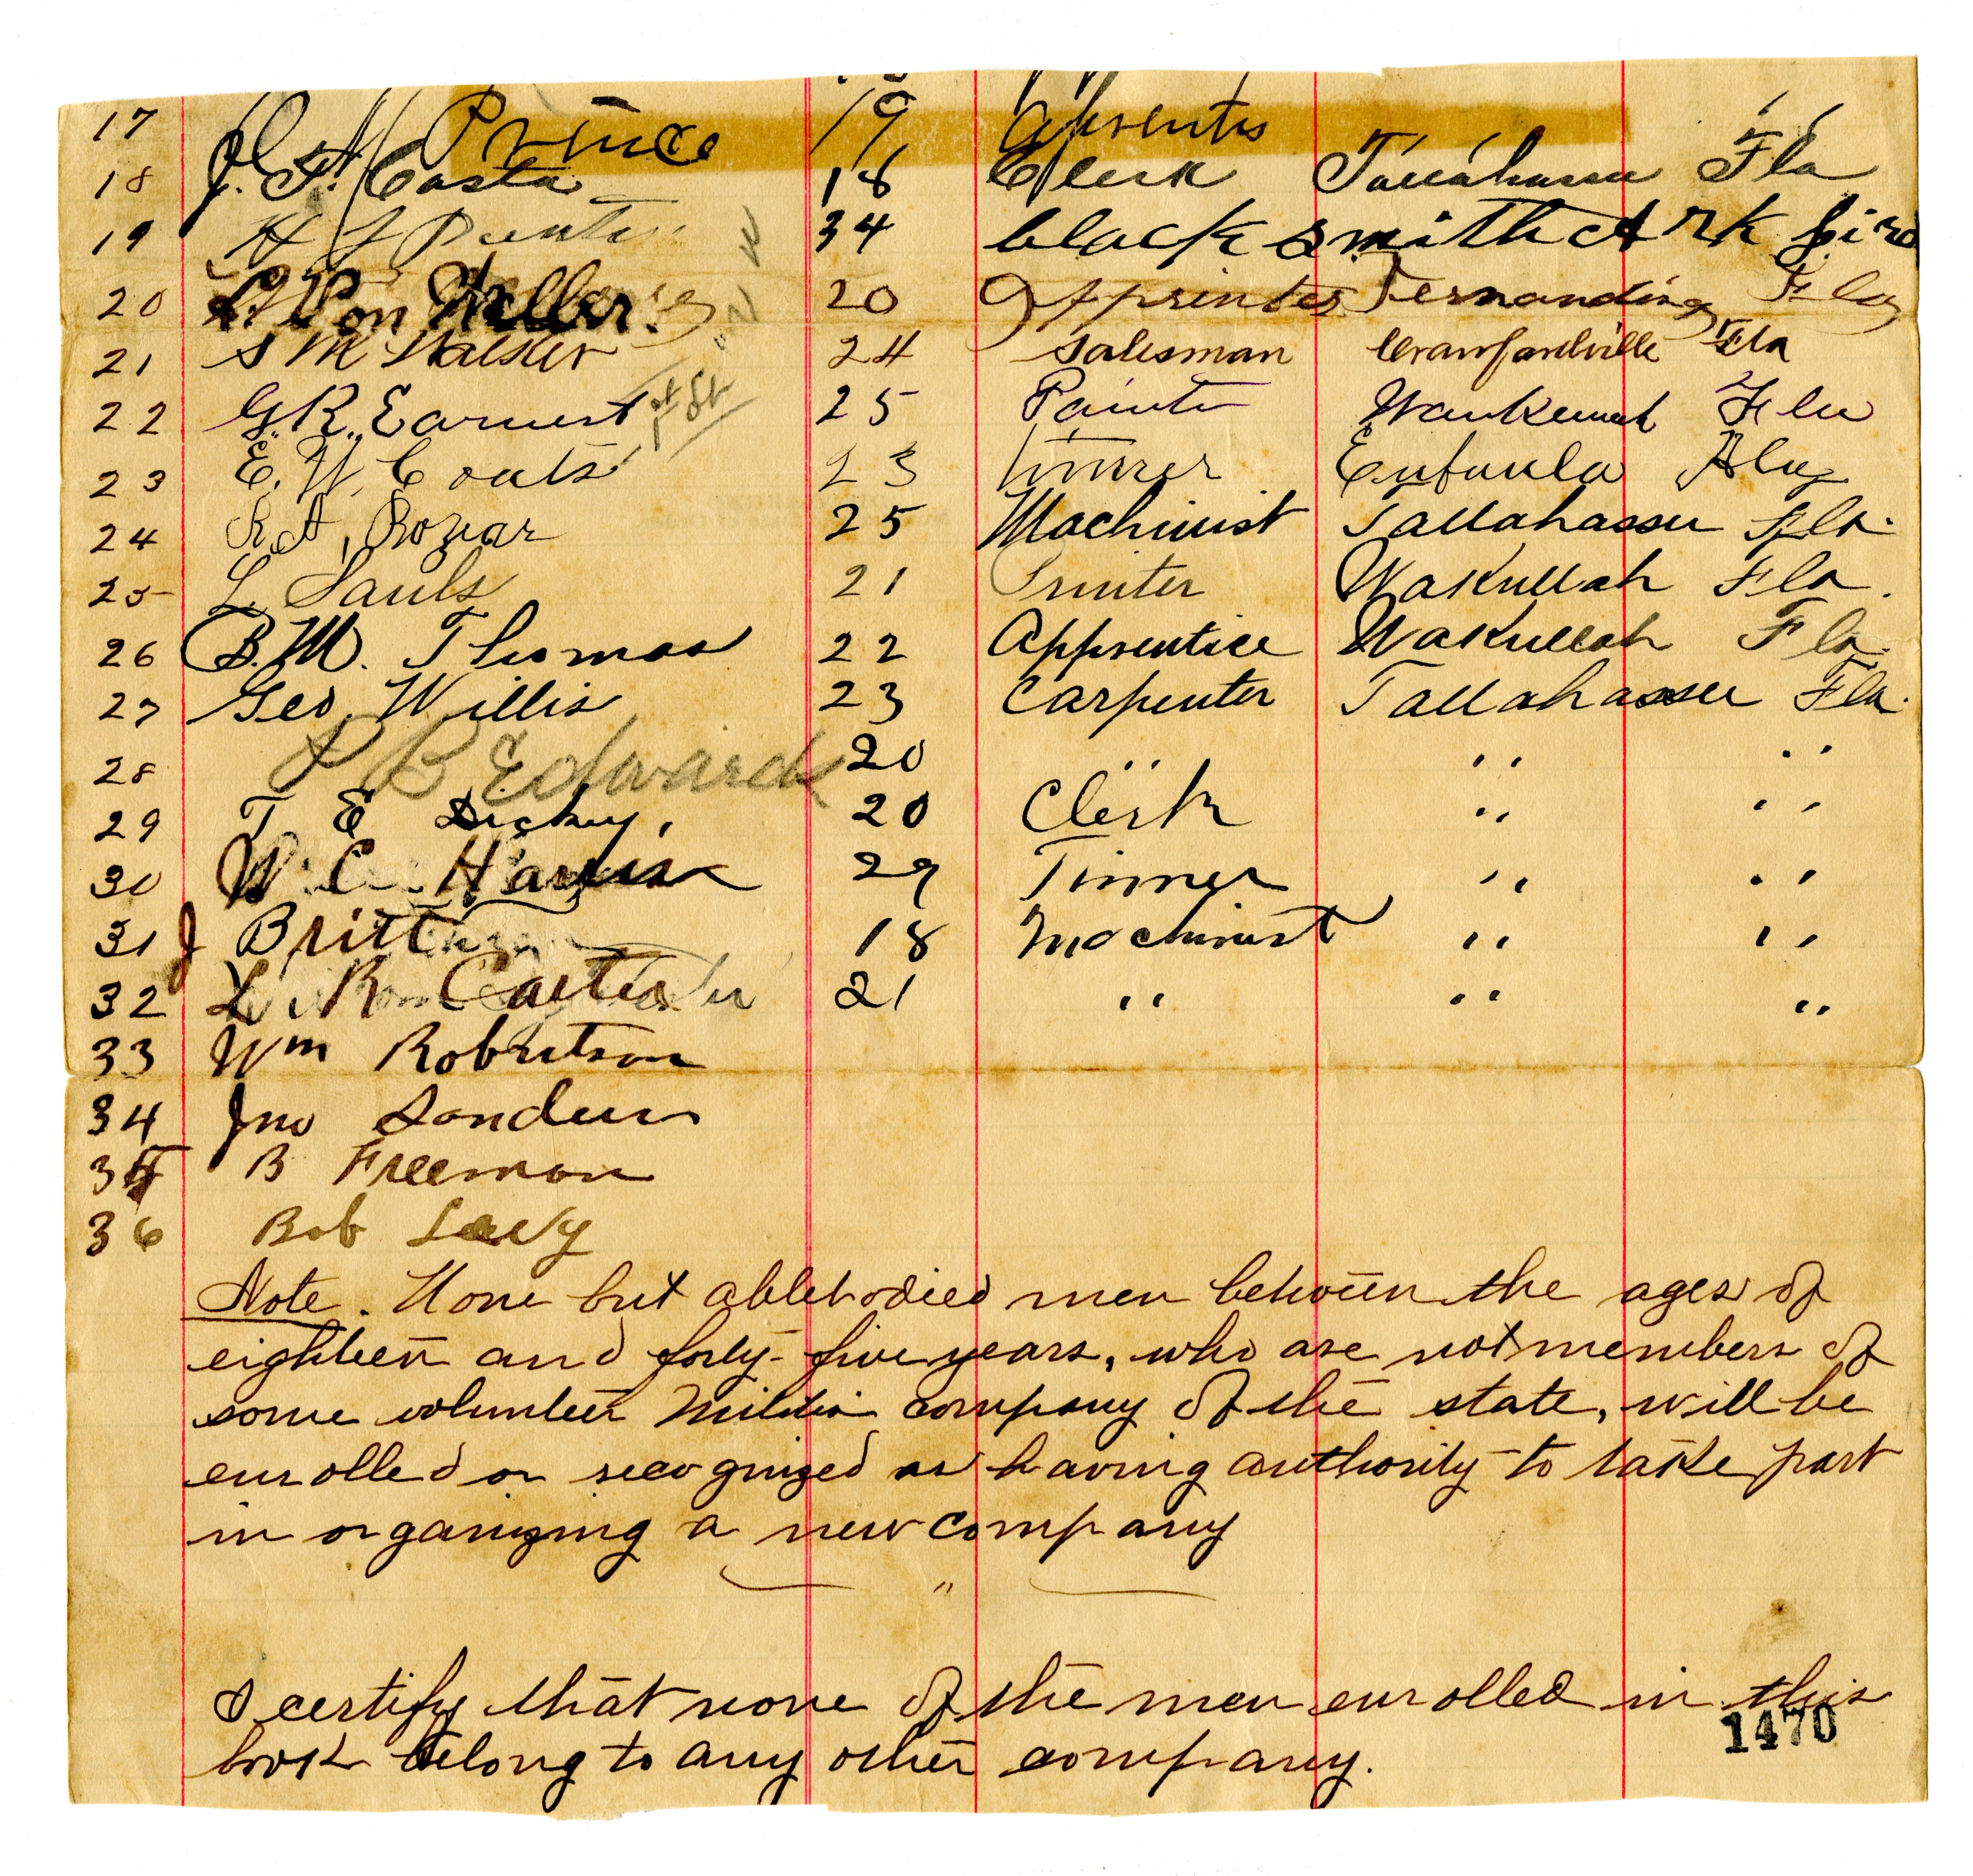 17 Prince 19
18 J. F. Costa 18 Clerk Tallahassee Fla
19 H 34 blacksmith Ark
20 Von 20 Fernandina Fla
21 S M Walker 24 Salesman Crawfordville Fla
22 G. R. Earnest 1st St 25 Painter Waukeenah Fla
23 E. W. Coats 23 Tinner Eufaula Ala
24 R. A. Bozear 25 Machinist Tallahassee Fla.
25 L. Sauls 21 Printer Wakullah Fla.
26 B. M. Thomas 22 Apprentice Wakullah Fla.
27 Geo. Willis 23 Carpenter Tallahassee Fla.
28 P B Edwards 20 " " "
29 T E Dickey, 20 Clerk " "
30 W. C. Harris 29 Tinner " "
31 J Britt 18 Machinist " "
32 L. R Carter 21 " " "
33 Wm Robertson
34 Jno Sanders
35 B Freeman
36 Bob Levy
Note. None but ablebodied men between the ages of
eighteen and forty-five years, who are not members of
some volunteer Militia company of the state, will be
enrolled or recognized as having authority to take part
in organizing a new company
"
I certify that none of the men enrolled in this
book belong to any other company.
1470